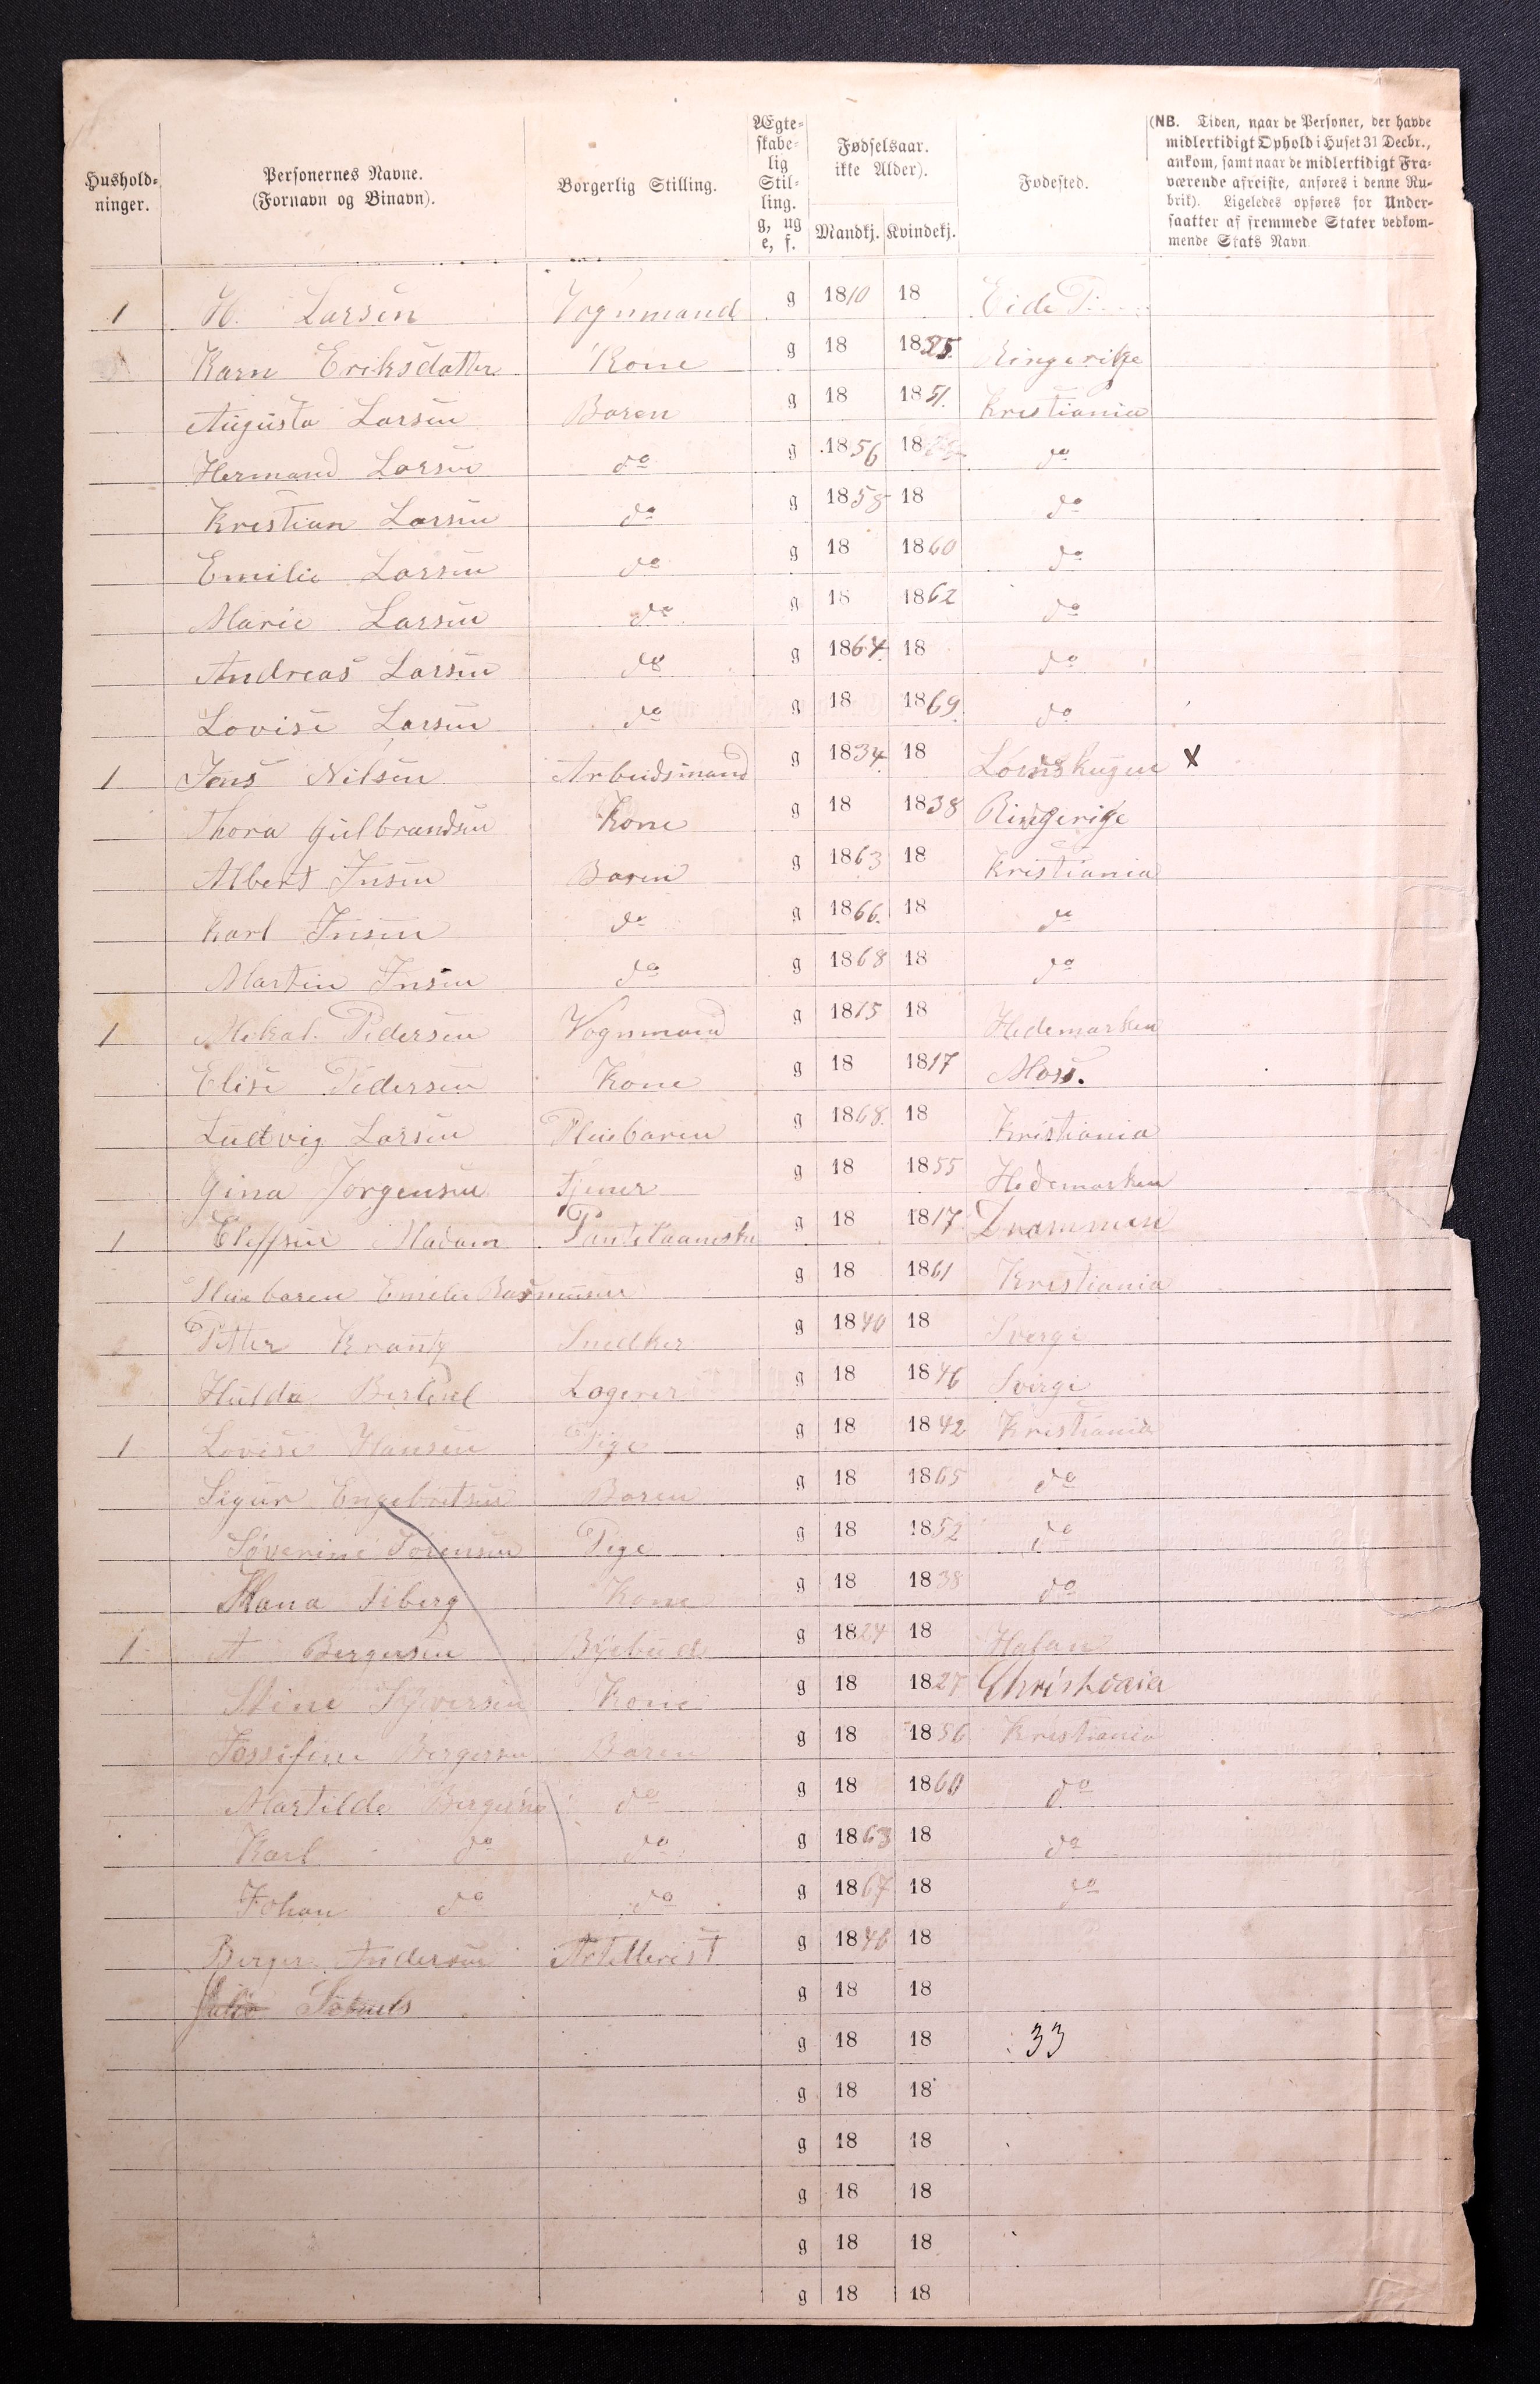 Hushold-
ninger.
Personernes Navne.
(Fornavn og Binavn).
Borgerlig Stilling.
Ægte-
skabe-
lig
Stil-
ling.
g, ug
e, f.
Fødselsaar.
ikke Alder).
Mandkj. Kvindekj.
Fødested.
(NB. Tiden, naar de Personer, der havde
midlertidigt Ophold i Huset 31 Decbr.,
ankom, samt naar de midlertidigt Fra-
værende afreiste, anføres i denne Ru-
brik). Ligeledes opføres for Under-
saatter af fremmede Stater vedkom-
mende Stats Navn
1 H. Larsen Vognmand g 1810 18 Eide
Karn Eriksdatter Kone g 18 1825. Ringerike
Augusta Larsen Baren g 18 1851. Kristiania
Hermand Larsen do g 1856 18 do
Kristian Larsen do g 1858 18 do
Emilie Larsen do g 18 1860 do
Marie Larsen do g 18 1862 do
Andreas Larsen do g 1864. 18 do
Lovise Larsen do g 18 1869. do
1 Jens Nilsen Arbeidsmand g 1834 18 X
Thora Gulbrandsen Kone g 18 1838 Ringerige
Albert Jnsen Baren g 1863 18 Kristiania
Karl Jnsen do g 1866. 18 do
Martin Jnsen do g 1868 18 do
1 Mekal. Pedersen Vognmand g 1815 18 Hedemarken
Elise Pedersen Kone g 18 1817 Moss.
Ludvig Larsen Pleiebaren g 1868. 18 Kristiania
Gina Jørgensen Tjener g 18 1855 Hedemarken
1 Eleffsen Madam Pantelaaneske g 18 1817. Drammen
Pleiebaren Emilie Rasmusen g 18 1861 Kristiania
Petter Krantz Snedker g 1840 18 Sverge
Hulda Logerer g 18 1846 Sverge
1 Lovise Hansen Pige g 18 1842 Kristiania
Sigur Engebretsen Baren g 18 1865 do
Søverine Sørensen Pige g 18 1852 do
Hana Kone g 18 1838 do
1 A Bergersen Byebud g 1824 18
Stine Kone g 18 1827 Christiania
Jossifine Bergersen Baren g 18 1856 Kristiania
Martilde Bergersen do g 18 1860 do
Karl do do g 1863 18 do
Johan do do g 1867 18 do
Berger Andersen Artellerist g 1846 18
g 18 18
g 18 18 33
g 18 18
g 18 18
g 18 18
g 18 18
g 18 18